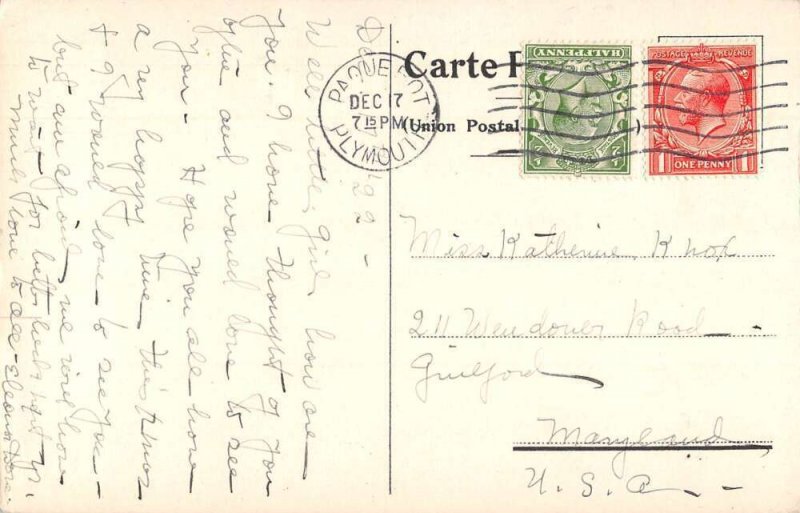 Dec
'22 -
Well little girl, how are
you. I have thought of you
often and would love to see
you - Hope you all have
a very happy time this Xmas
& I would love to see you -
but am afraid we will have
to wait for better luck next yr.
Much love to all - Eleanor
Carte
(Union Postal )
PAQUEBOT
DEC 17
7 15 PM
PLYMOUTH
HALFPENNY
POSTAGE REVENUE
ONE PENNY
Miss Katherine Knox
211 Wendover Road
Guilford
Maryland
U. S. A -